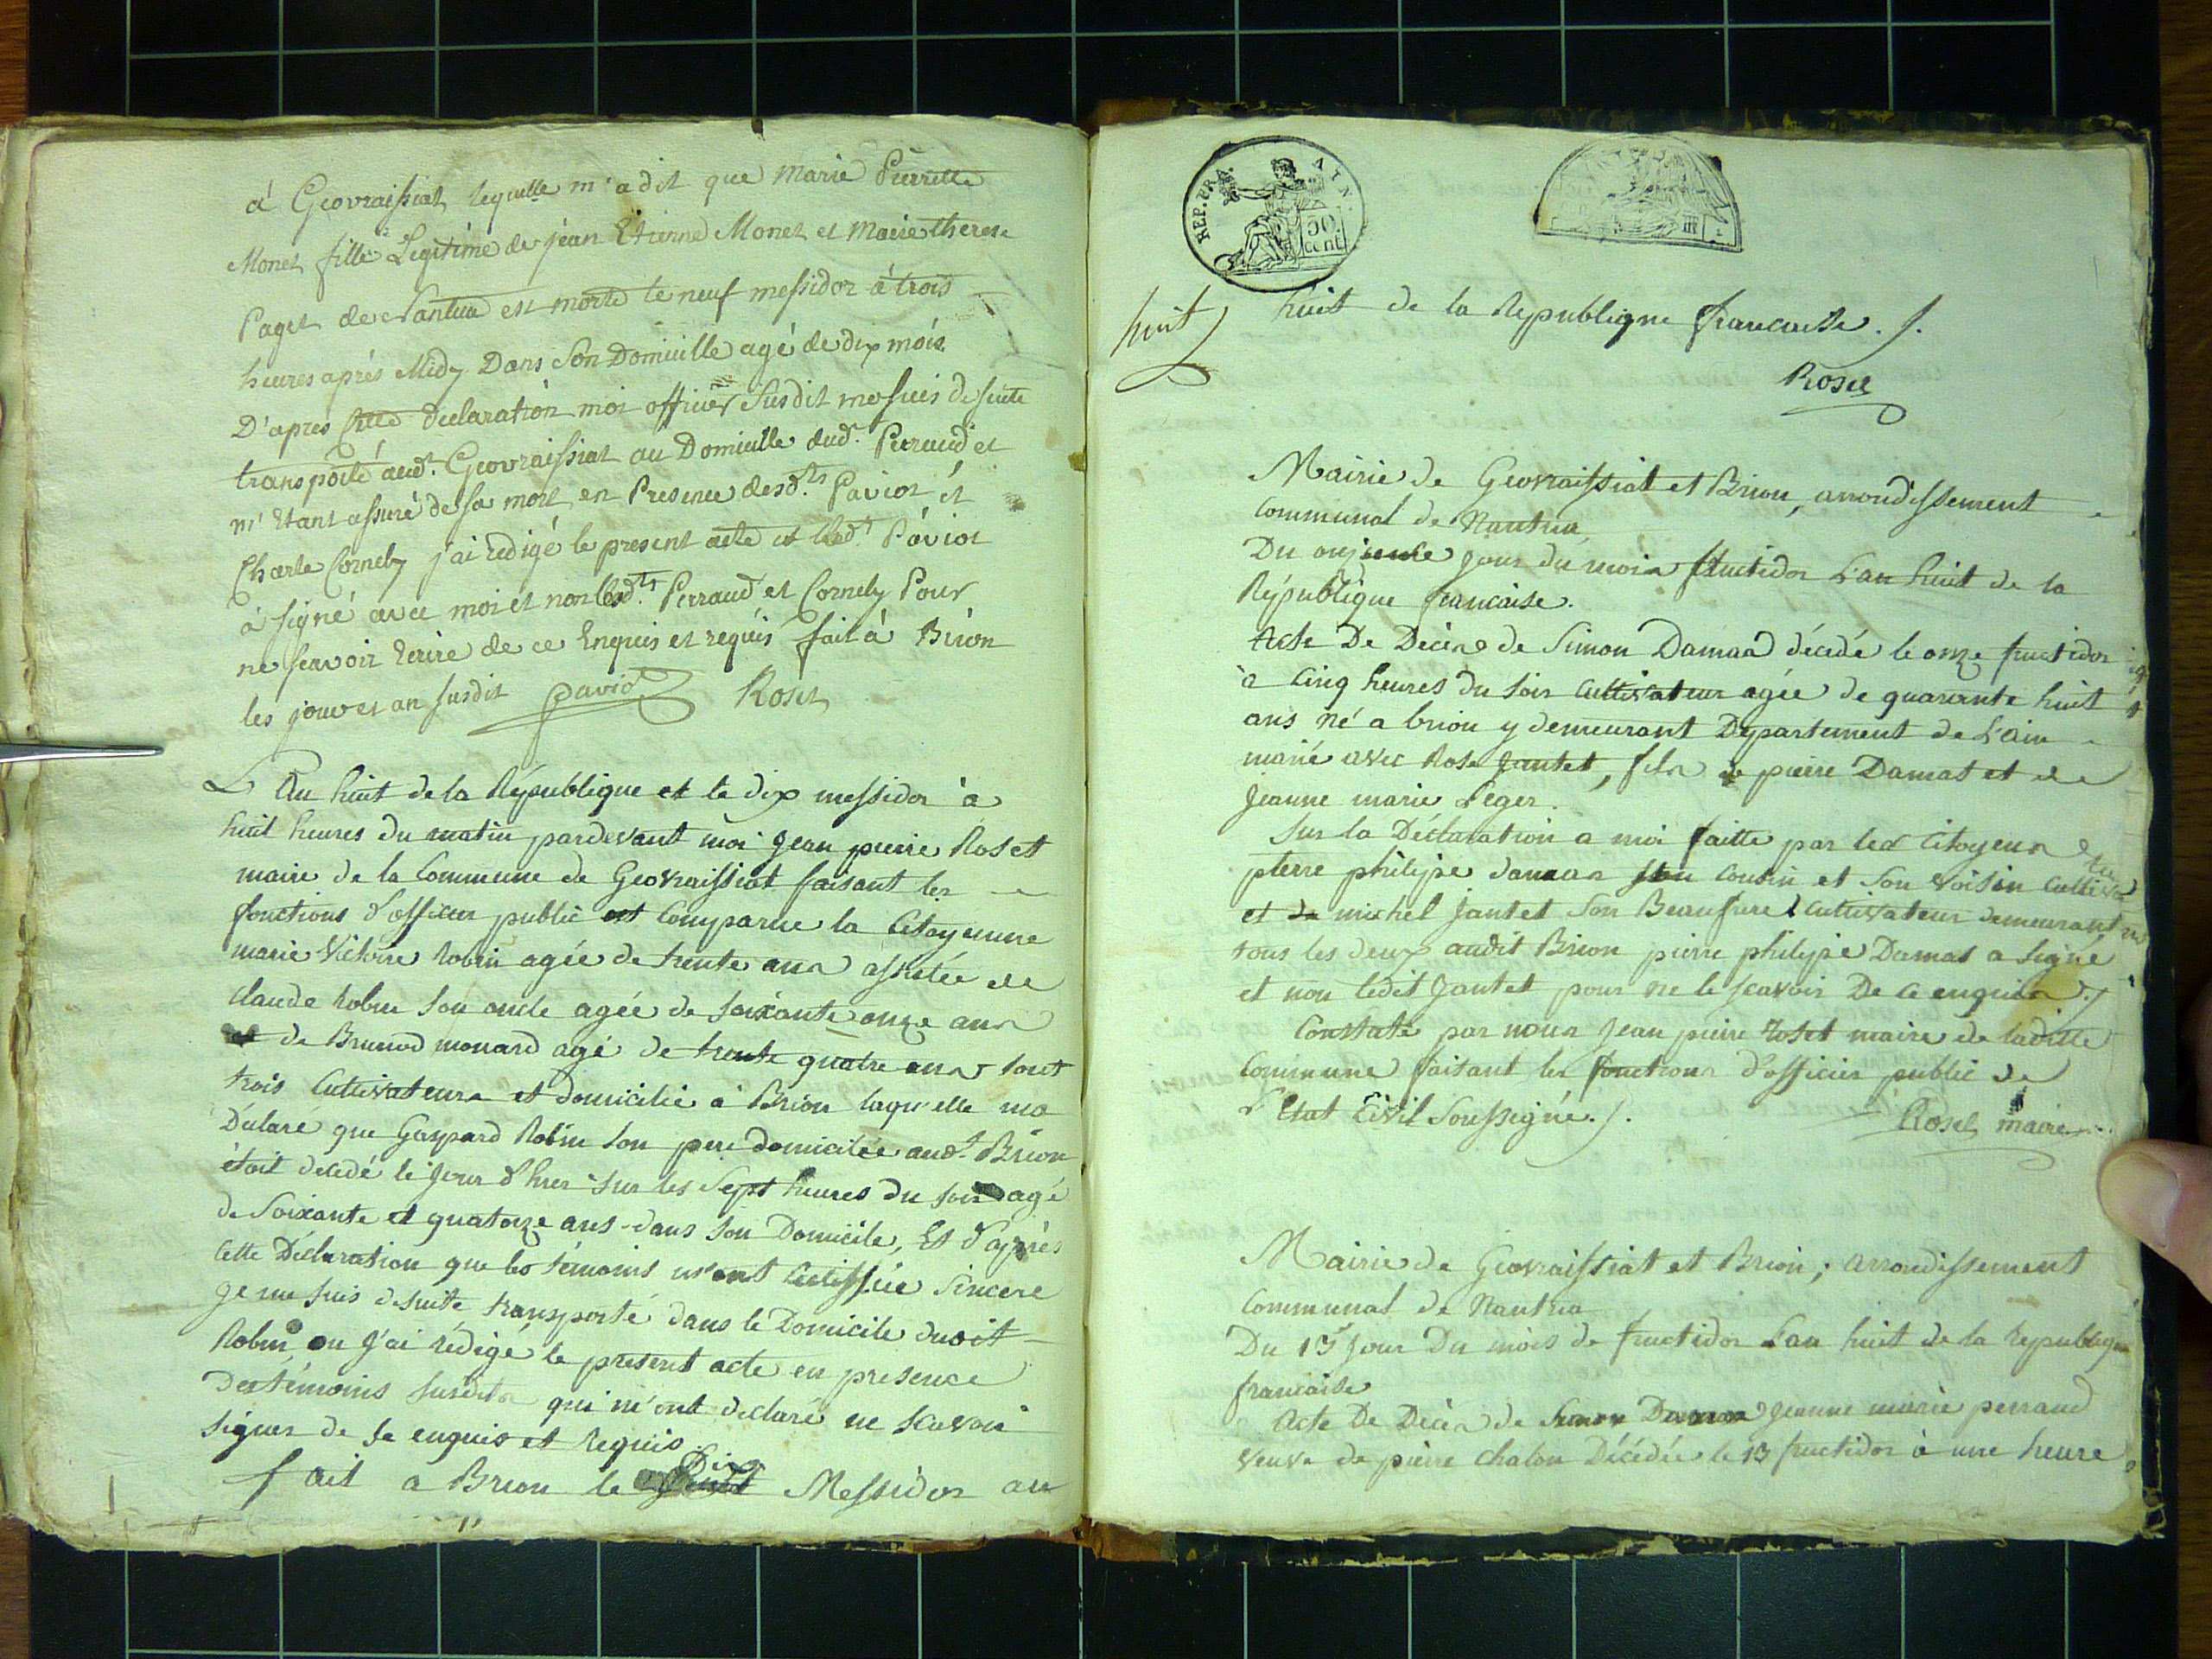 à Geovraissiat laquelle m'a dit que Marie Pierrette
Monet fille Legitime de jean Etienne Monet et Marie therese
Paget de Nantua est morte le neuf messidor à trois
heures après Midy Dans Son Domicille agé de dix mois
D'apres Cette declaration moi officier Susdit me suis de suite
transporté aud.t Geovraissiat au Domicille dud.t Perraud et
m'Etant assuré de sa mort en Presence desd.ts Paviot et
Charle Cornely j'ai redigé le present acte et led.t Paviot
à signé avec moi et non lesd.ts Perraud et Cornely Pour
ne scavoir Ecrire de ce Enquis et requis fait à Brion
les jour et an susdit Paviot Roset
L'An huit de la République et le dix messidor à
huit heures du matin pardevant moi Jean pierre Roset
maire de la Commune de Geovraissiat faisant les
fonctions d'officier public est Comparue la Citoyenne
marie Victoire Robin agée de trente ans assistée de
claude Robin son oncle agée de soixante onze ans
et de Brunod monard agé de trente quatre ans tout
trois Cultivateurs et domicilié à Brion laquelle ma
Déclaré que Gaspard Robin son pere domicilée aud.t Brion
étoit decedé le jour d'hier sur les Sept heures du soir agé
de Soixante et quatorze ans dans son Domicile, Et d'après
Cette Déclaration que les témoins m'ont Certifiée Sincere
je me suis desuite transporté dans le Domicile dudit
Robin ou j'ai rédigé le présent acte en presence
Des témoins susdits qui m'ont declaré ne scavoir
signer de se enquis et requis
fait a Brion le Dix Messidor an
REP. FRA. AIN.
50
cent.
huit
huit de la Republique francaise ./.
Roset
Mairie de Geovraissiat et Brion, arrondissement
Communal de Nantua
Du onzieme jour du mois fructidor L'an huit de la
République francaise.
Acte De Décès de Simon Damas décédé le onze fructidor
à Cinq heures du soir Cultivateur agée de quarante huit
ans né a brion y demeurant Département de L'ain
marié avec Rose Jantet, fils de pierre Damas et de
Jeanne marie Leger.
Sur la Déclaration a moi faitte par les Citoyens
pierre philipe damas son cousin et son voisin Cultivateur
et de michel Jantet son Beaufrere Cultivateur demeurant
tous les deux audit Brion pierre philipe Damas a signé
et non ledit Jantet pour ne le scavoir De ce enquis ./
Constaté par nous Jean pierre Roset maire de laditte
Commune faisant les fonctions d'officier public de
L'Etat Civil Soussigné ./.
Roset maire
Mairie de Geovraissiat et Brion; arrondissement
Communal de Nantua
Du 13e Jour Du mois de fructidor L'an huit de la République
francaise
Acte De Décès de Simon Damas Jeanne marie perraud
veuve de pierre chalon Décédée le 13 fructidor à une heure